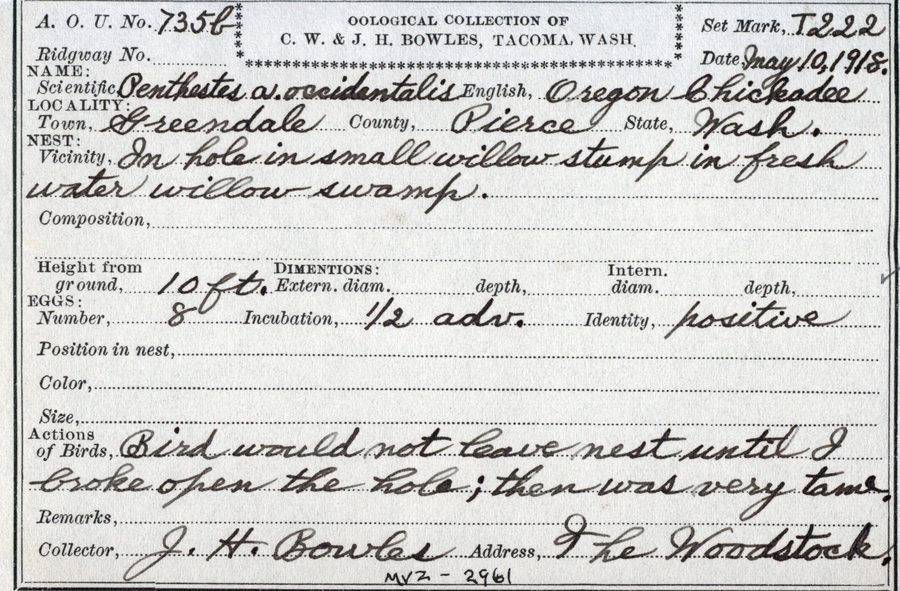 A. O. U. No. 735b
OOLOGICAL COLLECTION OF
Set Mark, T222
Ridgway No.
C. W. & J. H. BOWLES, TACOMA, WASH.
Date, May 10, 1918.
NAME:
Scientific, Penthestes a. occidentalis English, Oregon Chickadee
LOCALITY:
Town, Greendale County, Pierce State, Wash.
NEST:
Vicinity, In hole in small willow stump in fresh
water willow swamp.
Composition,
Height from ground, 10 ft. DIMENTIONS: Extern. diam. depth, Intern. diam. depth,
EGGS:
Number, 8 Incubation, 1/2 adv. Identity, positive
Position in nest,
Color,
Size,
Actions of Birds, Bird would not leave nest until I
broke open the hole; then was very tame.
Remarks,
Collector, J. H. Bowles Address, The Woodstock.
MVZ - 2961